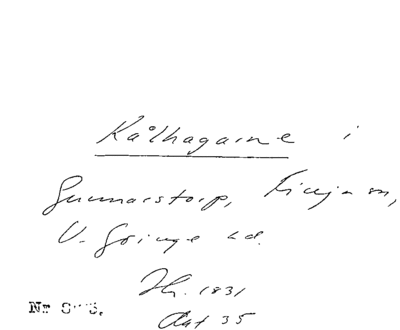 Kålhagarne i
Gunnarstorp, Finja sn,
V. Göinge hd.
Thr. 1831
dat 35
Nr